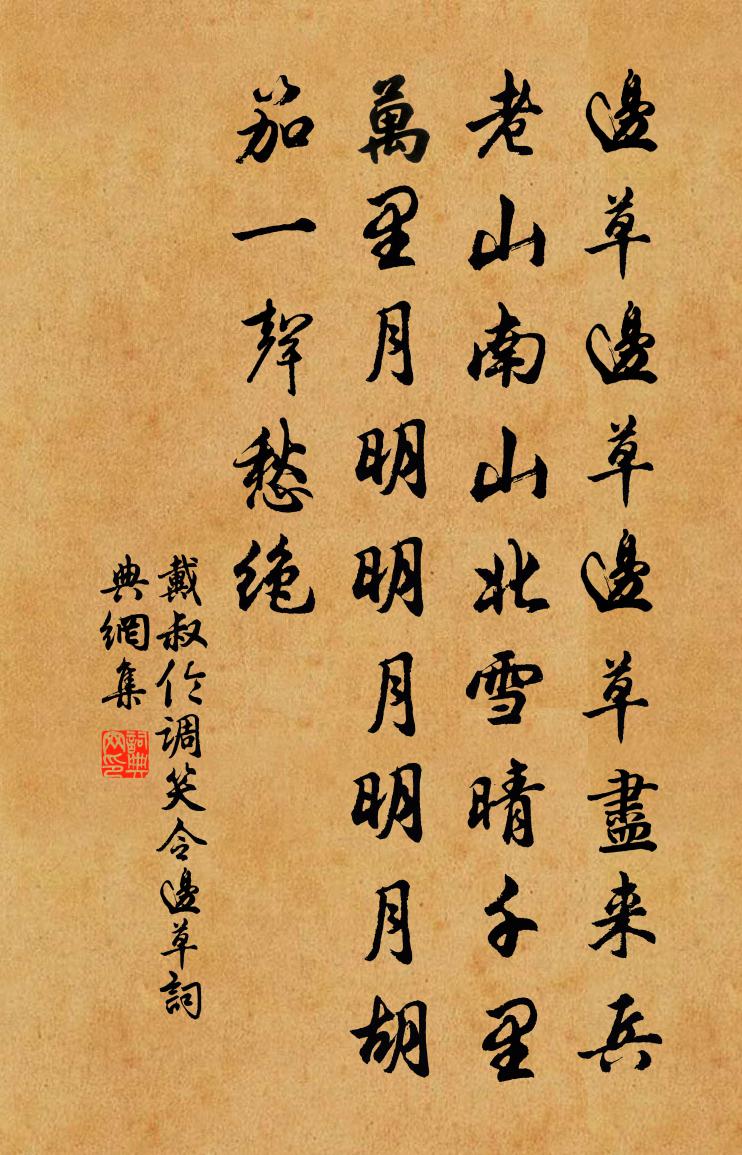 邊草邊草邊草盡来兵
老山南山北雪晴千里
萬里月明明月明月胡
笳一聲愁絶
戴叔伦調笑令邊草詞
典網集
詞典
网印